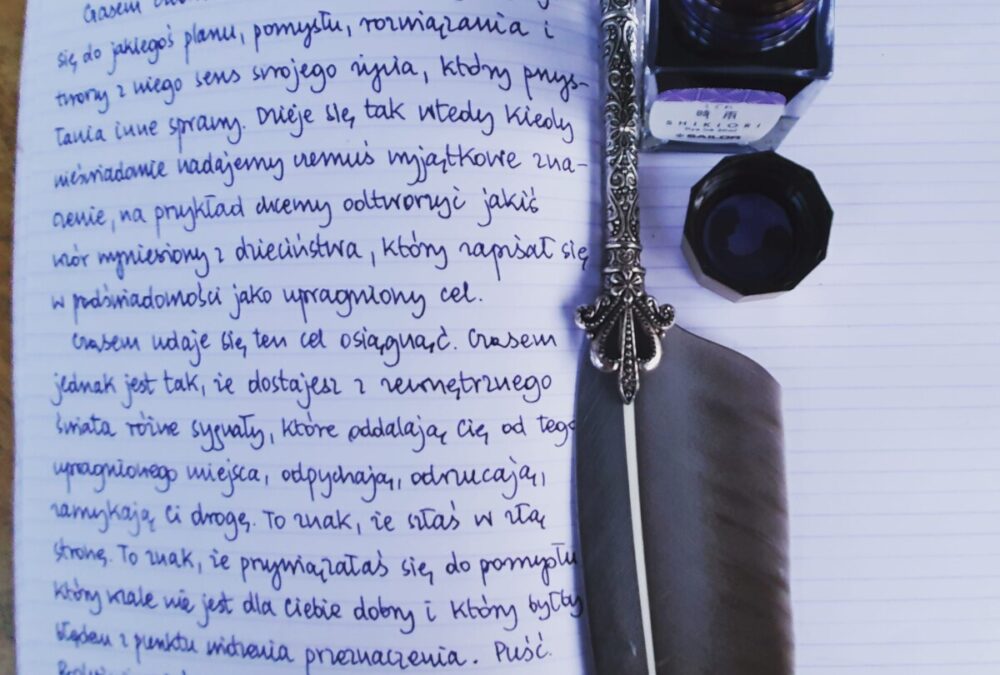 Czasem
się do jakiegoś planu, pomysłu, rozwiązania i
tworzy z niego sens swojego życia, który przys-
łania inne sprawy. Dzieje się tak wtedy kiedy
nieświadomie nadajemy czemuś wyjątkowe zna-
czenie, na przykład chcemy odtworzyć jakiś
wzór wyniesiony z dzieciństwa, który zapisał się
w podświadomości jako upragniony cel.
Czasem udaje się ten cel osiągnąć. Czasem
jednak jest tak, że dostajesz z zewnętrznego
świata różne sygnały, które oddalają Cię od tego
upragnionego miejsca, odpychają, odrzucają,
zamykają Ci drogę. To znak, że szłaś w złą
stronę. To znak, że przywiązałaś się do pomysłu
który wcale nie jest dla Ciebie dobry i który byłby
błędem z punktu widzenia przeznaczenia. Puść.
しぐれ
時雨
SHIKIORI
SAILOR